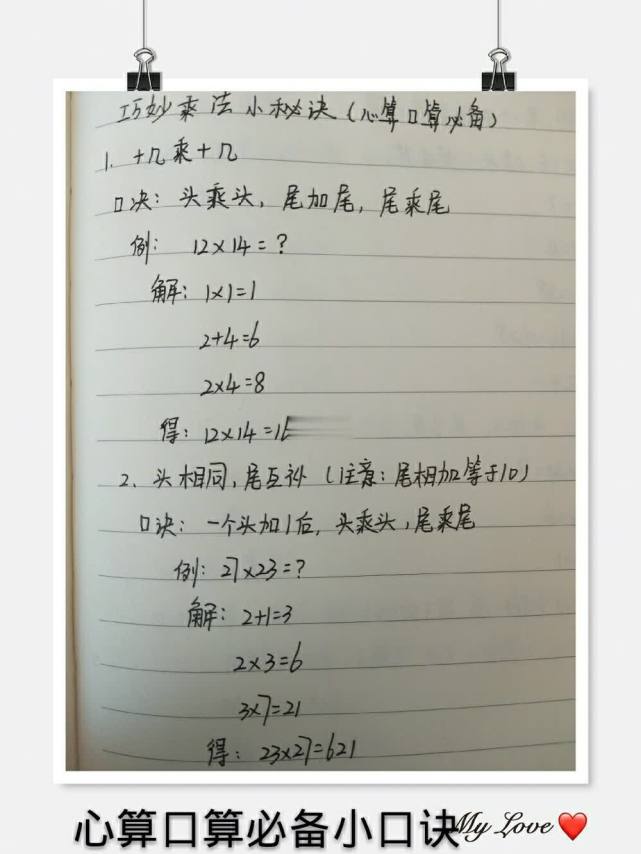 巧妙乘法小秘诀(心算口算必备)
1. 十几乘十几
口决: 头乘头, 尾加尾, 尾乘尾
例: 12×14=?
解: 1×1=1
2+4=6
2×4=8
得: 12×14=16
2、头相同, 尾互补 (注意: 尾相加等于10)
口诀: 一个头加1后, 头乘头, 尾乘尾
例: 27×23=?
解: 2+1=3
2×3=6
3×7=21
得: 23×27=621
心算口算必备小口诀
My Love ❤️